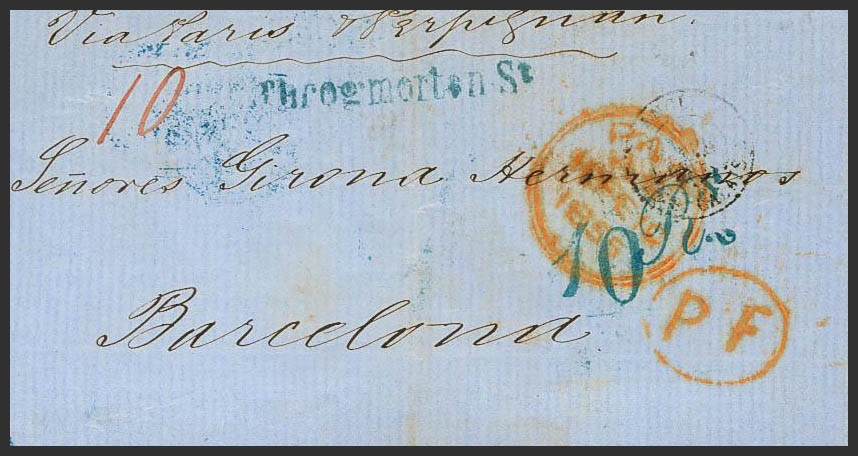 Via Paris & Perpignan.
10
Throgmorton St
Señores Girona Hermanos
PA
18
10 Rs
Barcelona
P F